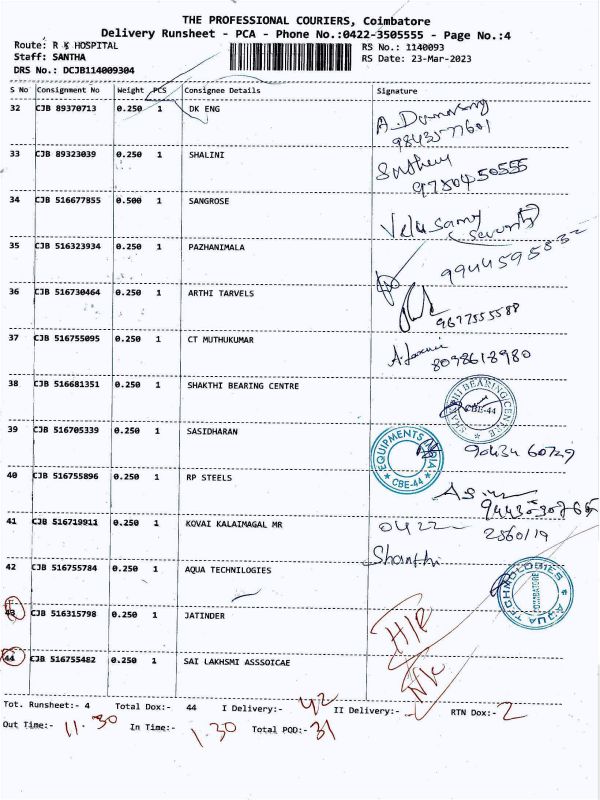 THE PROFESSIONAL COURIERS, Coimbatore
Delivery Runsheet - PCA - Phone No.:0422-3505555 - Page No.:4
Route: R K HOSPITAL
RS No.: 1140093
Staff: SANTHA
RS Date: 23-Mar-2023
DRS No.: DCJB114009304
S No Consignment No Weight PCS Consignee Details Signature
32 CJB 89370713 0.250 1 DK ENG
33 CJB 89323039 0.250 1 SHALINI
9750450555
34 CJB 516677855 0.500 1 SANGROSE
Velusamy
Security
35 CJB 516323934 0.250 1 PAZHANIMALA
36 CJB 516730464 0.250 1 ARTHI TARVELS
9677555588
37 CJB 516755095 0.250 1 CT MUTHUKUMAR
8098618980
38 CJB 516681351 0.250 1 SHAKTHI BEARING CENTRE
SHAKTHI BEARING CENTRE CBE-44
39 CJB 516705339 0.250 1 SASIDHARAN
90434 60729
EQUIPMENTS CBE-44
40 CJB 516755896 0.250 1 RP STEELS
41 CJB 516719911 0.250 1 KOVAI KALAIMAGAL MR 0422
2560119
Shanthi
42 CJB 516755784 0.250 1 AQUA TECHNILOGIES
AQUA TECHNOLOGIES COIMBATORE
43 CJB 516315798 0.250 1 JATINDER
44 CJB 516755482 0.250 1 SAI LAKHSMI ASSSOICAE
Tot. Runsheet:- 4 Total Dox:- 44 I Delivery:- 42 II Delivery:- RTN Dox:- 2
Out Time:- 11.30 In Time:- 1.30 Total POD:- 31